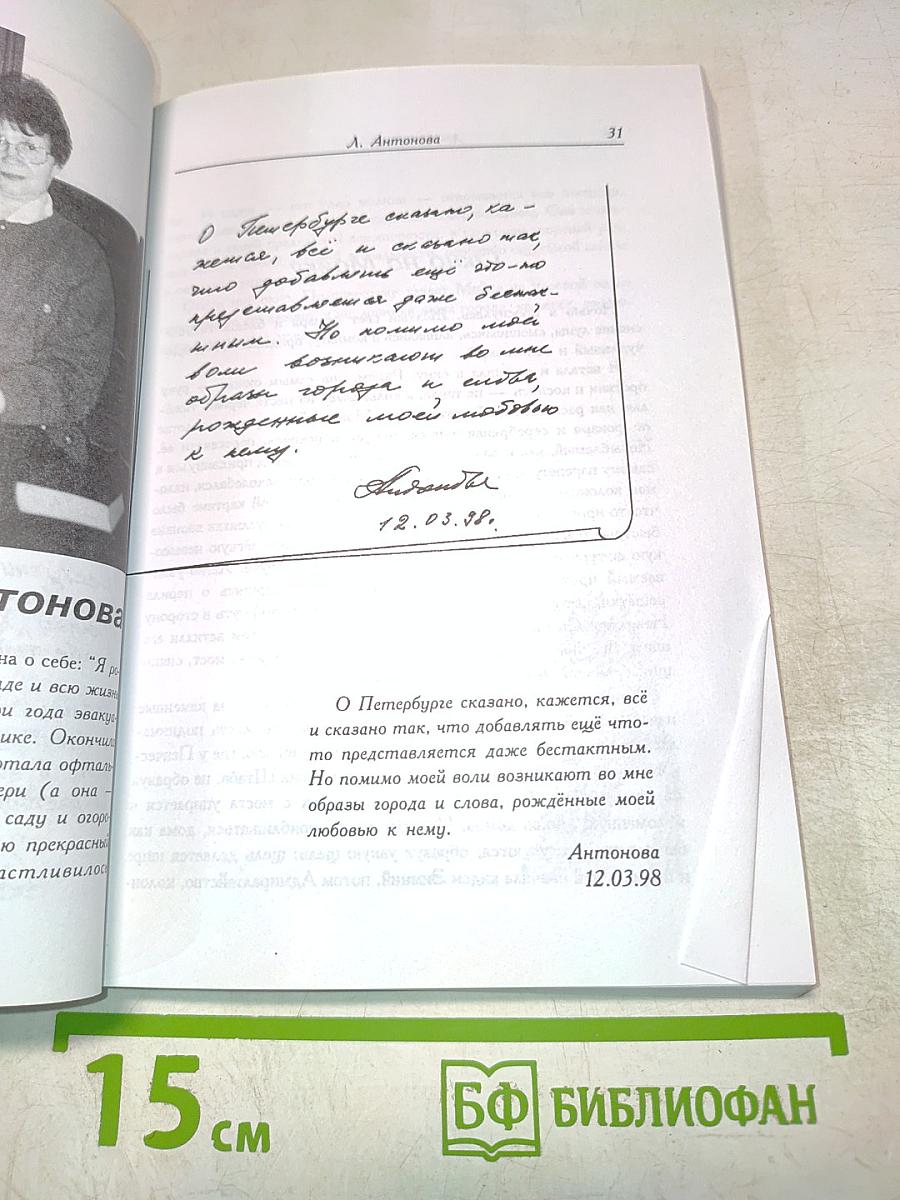 Л. Антонова
31
О Петербурге сказано, ка-
жется, всё и сказано так,
что добавлять ещё что-то
представляется даже бестак-
тным. Но помимо моей
воли возникают во мне
образы города и слова,
рожденные моей любовью
к нему.
Антонова
12.03.98г.
тонова
на о себе: "Я ро-
де и всю жизнь
ри года эвакуа-
ике. Окончила
отала офталь-
ери (а она –
саду и огоро-
ю прекрасный
астливилось
О Петербурге сказано, кажется, всё
и сказано так, что добавлять ещё что-
то представляется даже бестактным.
Но помимо моей воли возникают во мне
образы города и слова, рождённые моей
любовью к нему.
Антонова
12.03.98
15 см
БФ БИБЛИОФАН